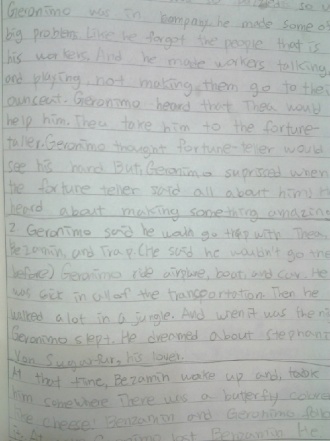 Geronimo was in company. he made some of
big problem. Like he forgot the people that is
his workers. And he made workers talking
and playing, not making them go to their
Geronimo heard that Thea would
help him. Thea take him to the fortune-
teller. Geronimo thought fortune-teller would
see his hand. But, Geronimo suprised when
the fortune teller said all about him! H
heard about making something amazing
2 Geronimo said he would go trip with Thea,
Benzamin, and Trap. (He said he wouldn't go
before) Geronimo ride airplane, boat, and car. He
was sick in all of the transportation. Then he
walked a lot in a jungle. And when it was the ni
Geronimo slept. He dreamed about Stephanie
Von Sugarfur, his lover.
At that time, Benzamin wake up and, took
him somewhere There was a butterfly
like cheese! Benzamin and Geronimo
lost Benzamin. He